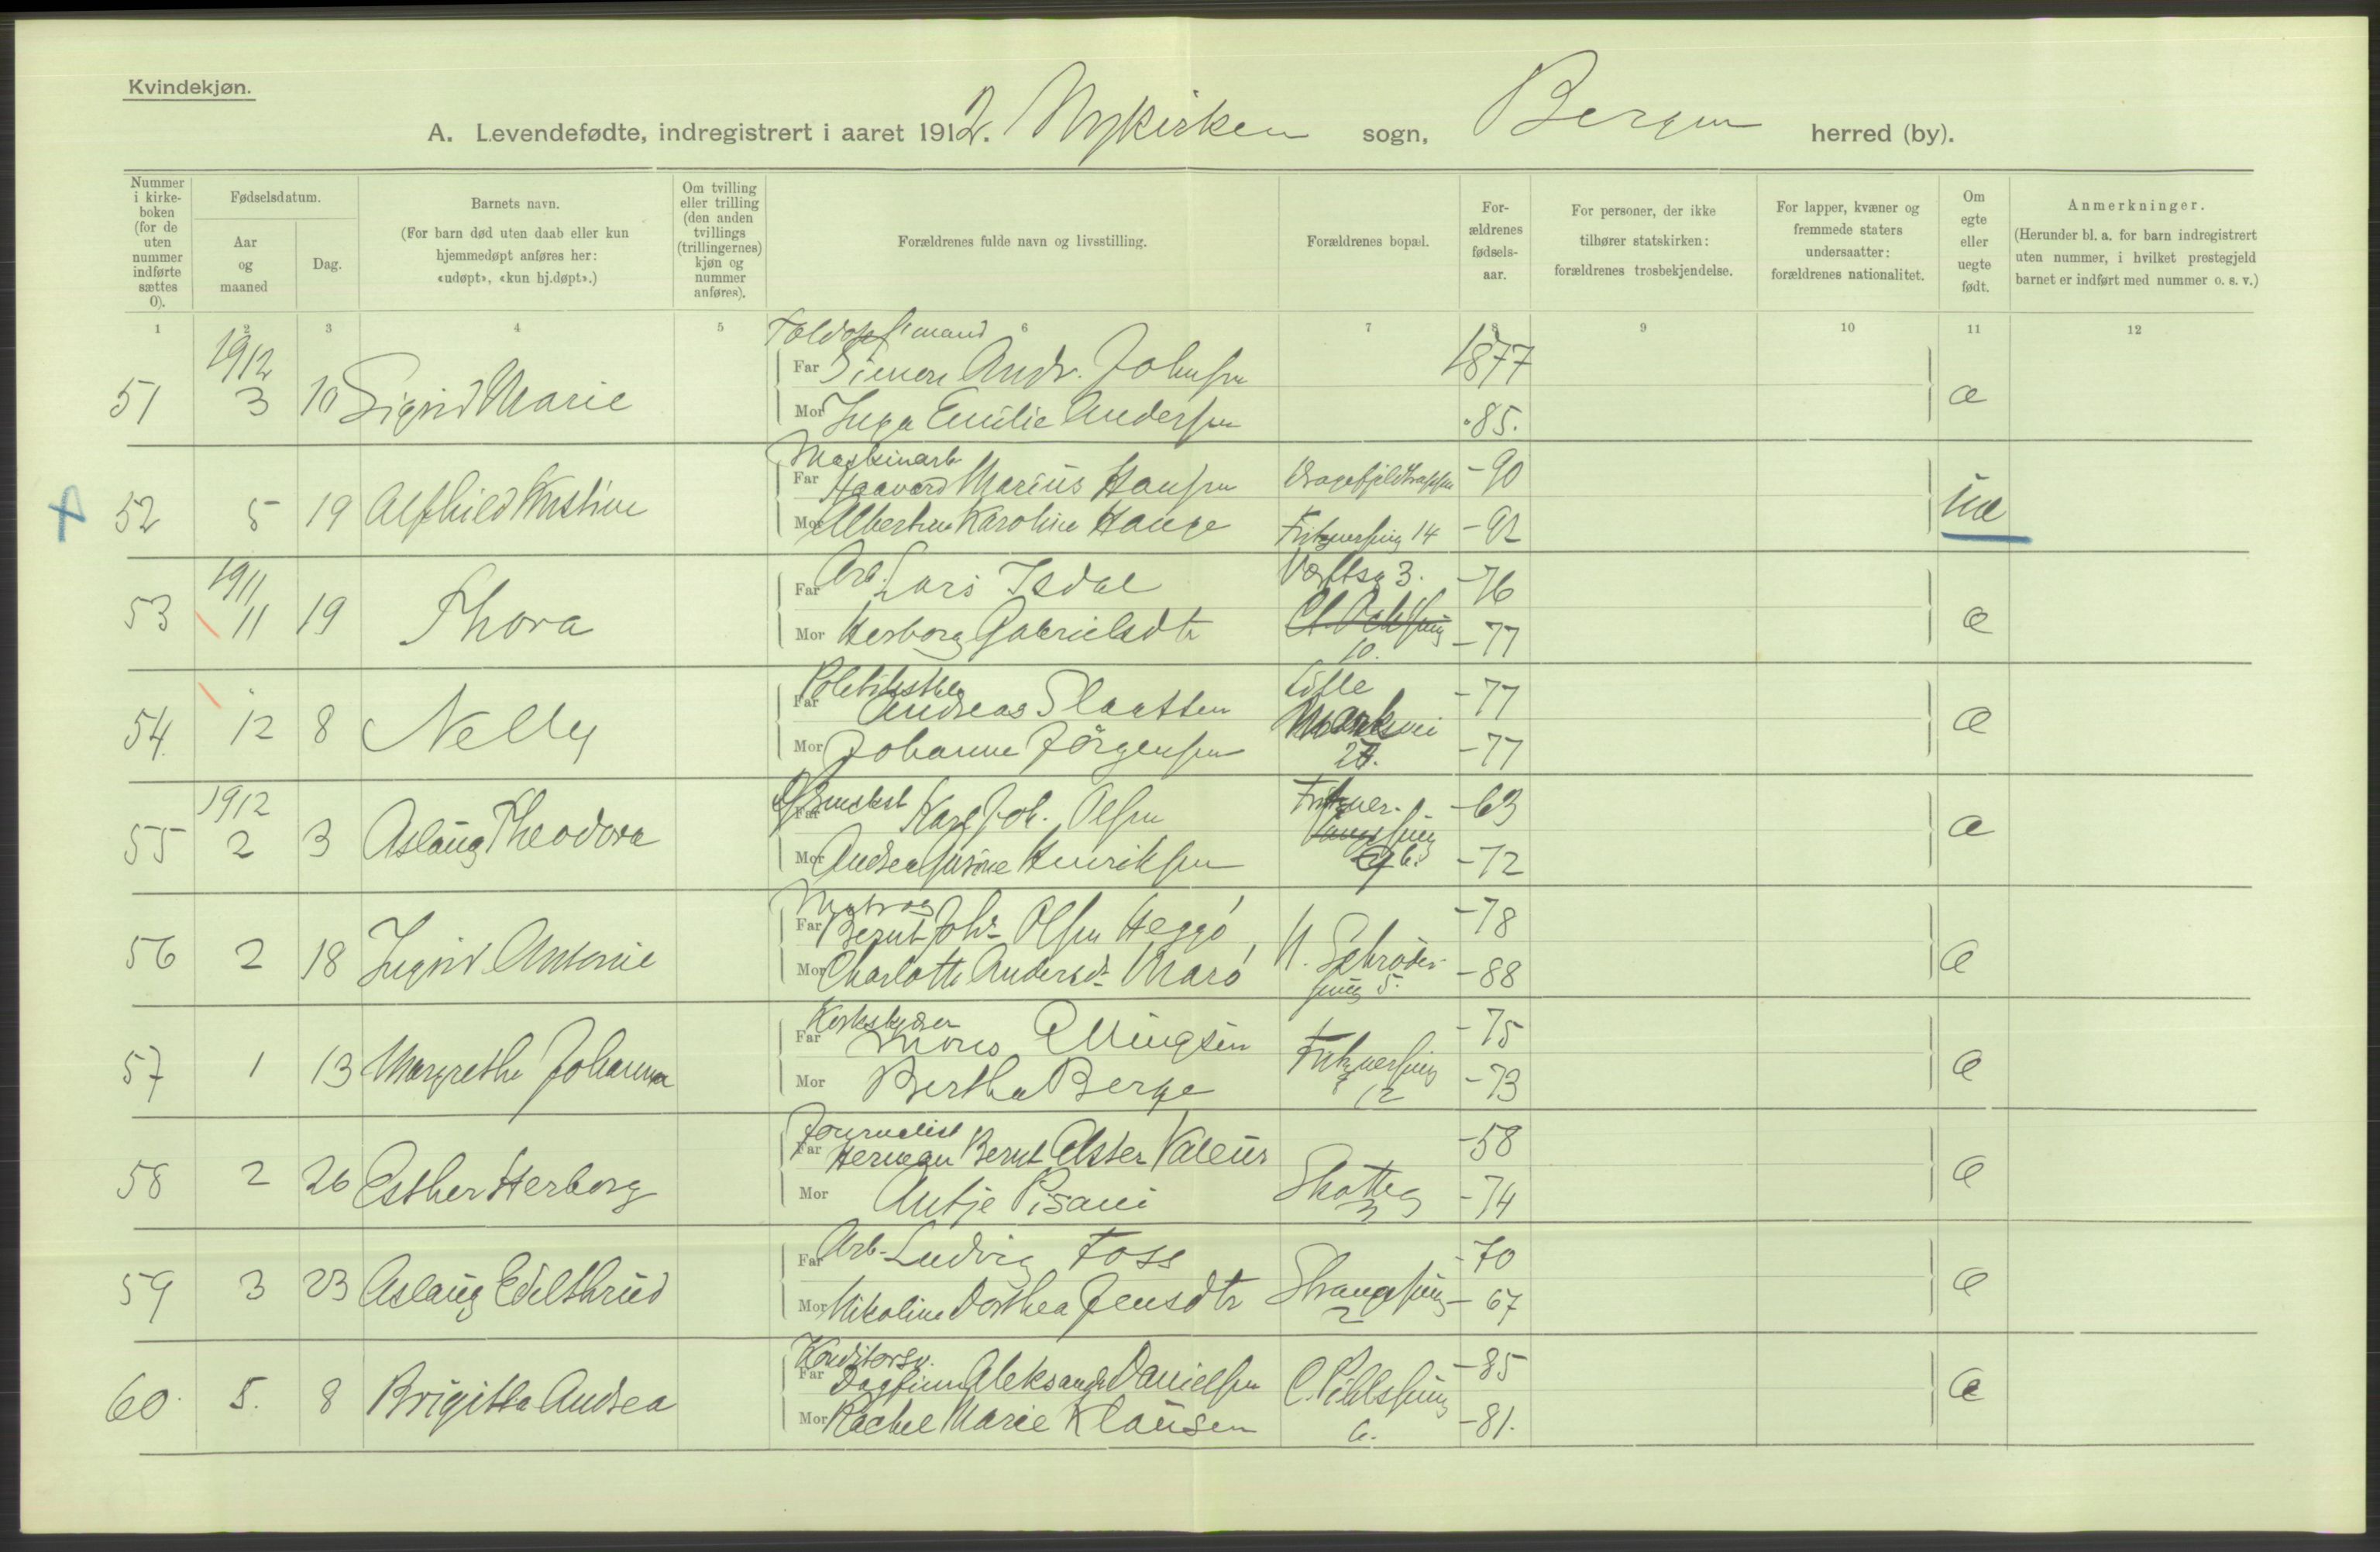 Kvindekjøn.
A. Levendefødte, indregistrert i aaret 1912. Nykirken sogn, Bergen herred (by).
Nummer i kirke-boken (for de uten nummer indførte sættes 0).
Fødselsdatum.
Aar og maaned
Dag.
Barnets navn.
(For barn død uten daab eller kun hjemmedøpt anføres her: «udøpt», «kun hj.døpt».)
Om tvilling eller trilling (den anden tvillings (trillingernes) kjøn og nummer anføres).
Forældrenes fulde navn og livsstilling.
Forældrenes bopæl.
For-ældrenes fødsels-aar.
For personer, der ikke tilhører statskirken: forældrenes trosbekjendelse.
For lapper, kvæner og fremmede staters undersaatter: forældrenes nationalitet.
Om egte eller uegte født.
Anmerkninger.
(Herunder bl. a. for barn indregistrert uten nummer, i hvilket prestegjeld barnet er indført med nummer o. s. v.)
1 2 3 4 5 6 7 8 9 10 11 12
1912
51 3 10 Sigrid Marie
Far Simon Andr. Johnsen 1877
Mor Inga Emilie Andersen 85.
æ
52 5 19 Alfhild Kristine
Maskinarb
Far Haavard Marius Hansen -90
Mor Albertine Karoline Hauge Fritznersmug 14 -92
uæ
1911
53 11 19 Thora
Far Arb. Lars Isdal Værftsg 3. -76
Mor Herborg Gabrielsdtr 10. -77
æ
54. 12 8 Nelly
Far Andreas Slaatten Lille -77
Mor Johanne Jörgensen Markevei -77
æ
1912
55 2 3 Aslaug Theodora
Far Karl Joh. Olsen Fritzner- -63
Mor Andrea Henriksen smug -72
æ
56 2 18 Ingrid Antonie
Matros
Far Bernt Johs Olsen Heggö -78
Mor Charlotte Andersdr Marö H. Schrøder smug 5. -88
æ
57 1 13 Margrethe Johanna
Far Mons Ellingsen -75
Mor Bertha Berge Fritznersmug 12 -73
æ
58 2 26 Esther Herborg
Journalist
Far Herman Bernt Alster Valeur -58
Mor Antje Pisani Skotteg 3 -74
æ
59 3 23 Aslaug Edilthrud
Far Arb. Ludvig Foss -70
Mor Nikoline Dorthea Jensdtr Strangesmug 2 -67
æ
60. 5. 8 Brigitta Andrea
Konditorsv.
Far Dagfinn Aleksander Danielsen -85
Mor Rachel Marie Klausen C. Pihlsmug 6. -81.
æ